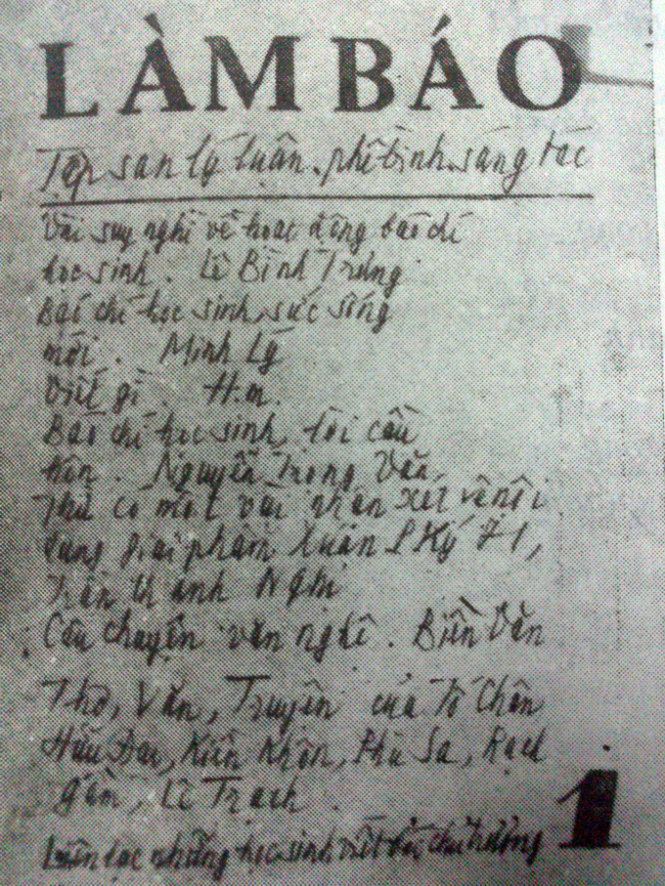 LÀM BÁO
Tập san lý luận. phê bình. sáng tác
Vài suy nghĩ về hoạt động báo chí
học sinh. Lê Bình Trưng
Báo chí học sinh, sức sống
mới. Minh Lý
Viết gì. H.m.
Báo chí học sinh, lời cầu
hôn. Nguyễn Trọng Văn
Thử có một vài nhận xét về nội
dung giai phẩm Xuân P Ký 71,
Trần thanh Nghị
Câu chuyện văn nghệ. Biền Văn
Thơ, Văn, Truyện của Tô Chân
Hữu Đai, Kiên Nhận, Phù Sa, Rạch
gầm, Lê Trạch
những học sinh viết chủ trương
1